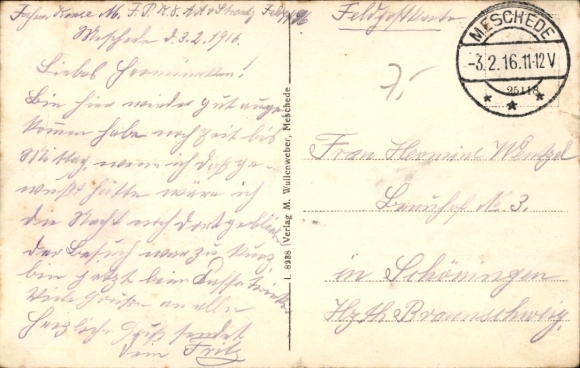 Feldpostkarte
Meschede d. 3.2.1916.
Liebes Herminchen!
Bin hier wieder gut ange-
kommen habe noch Zeit bis
Mittag, wenn ich daß ge-
wußt hätte wäre ich
die Nacht noch dort geblieben
der Besuch war zu kurz
bin jetzt beim Kaffetrinken
Viele Grüße an alle
Herzliche Gruß sendet
Dein Fritz
I. 8238 Verlag M. Wullenweber, Meschede
MESCHEDE
-3.2.16.11-12V
Frau Hermine Wentzel
Brauhof No 3.
in Schöningen
Hzgth Braunschweig